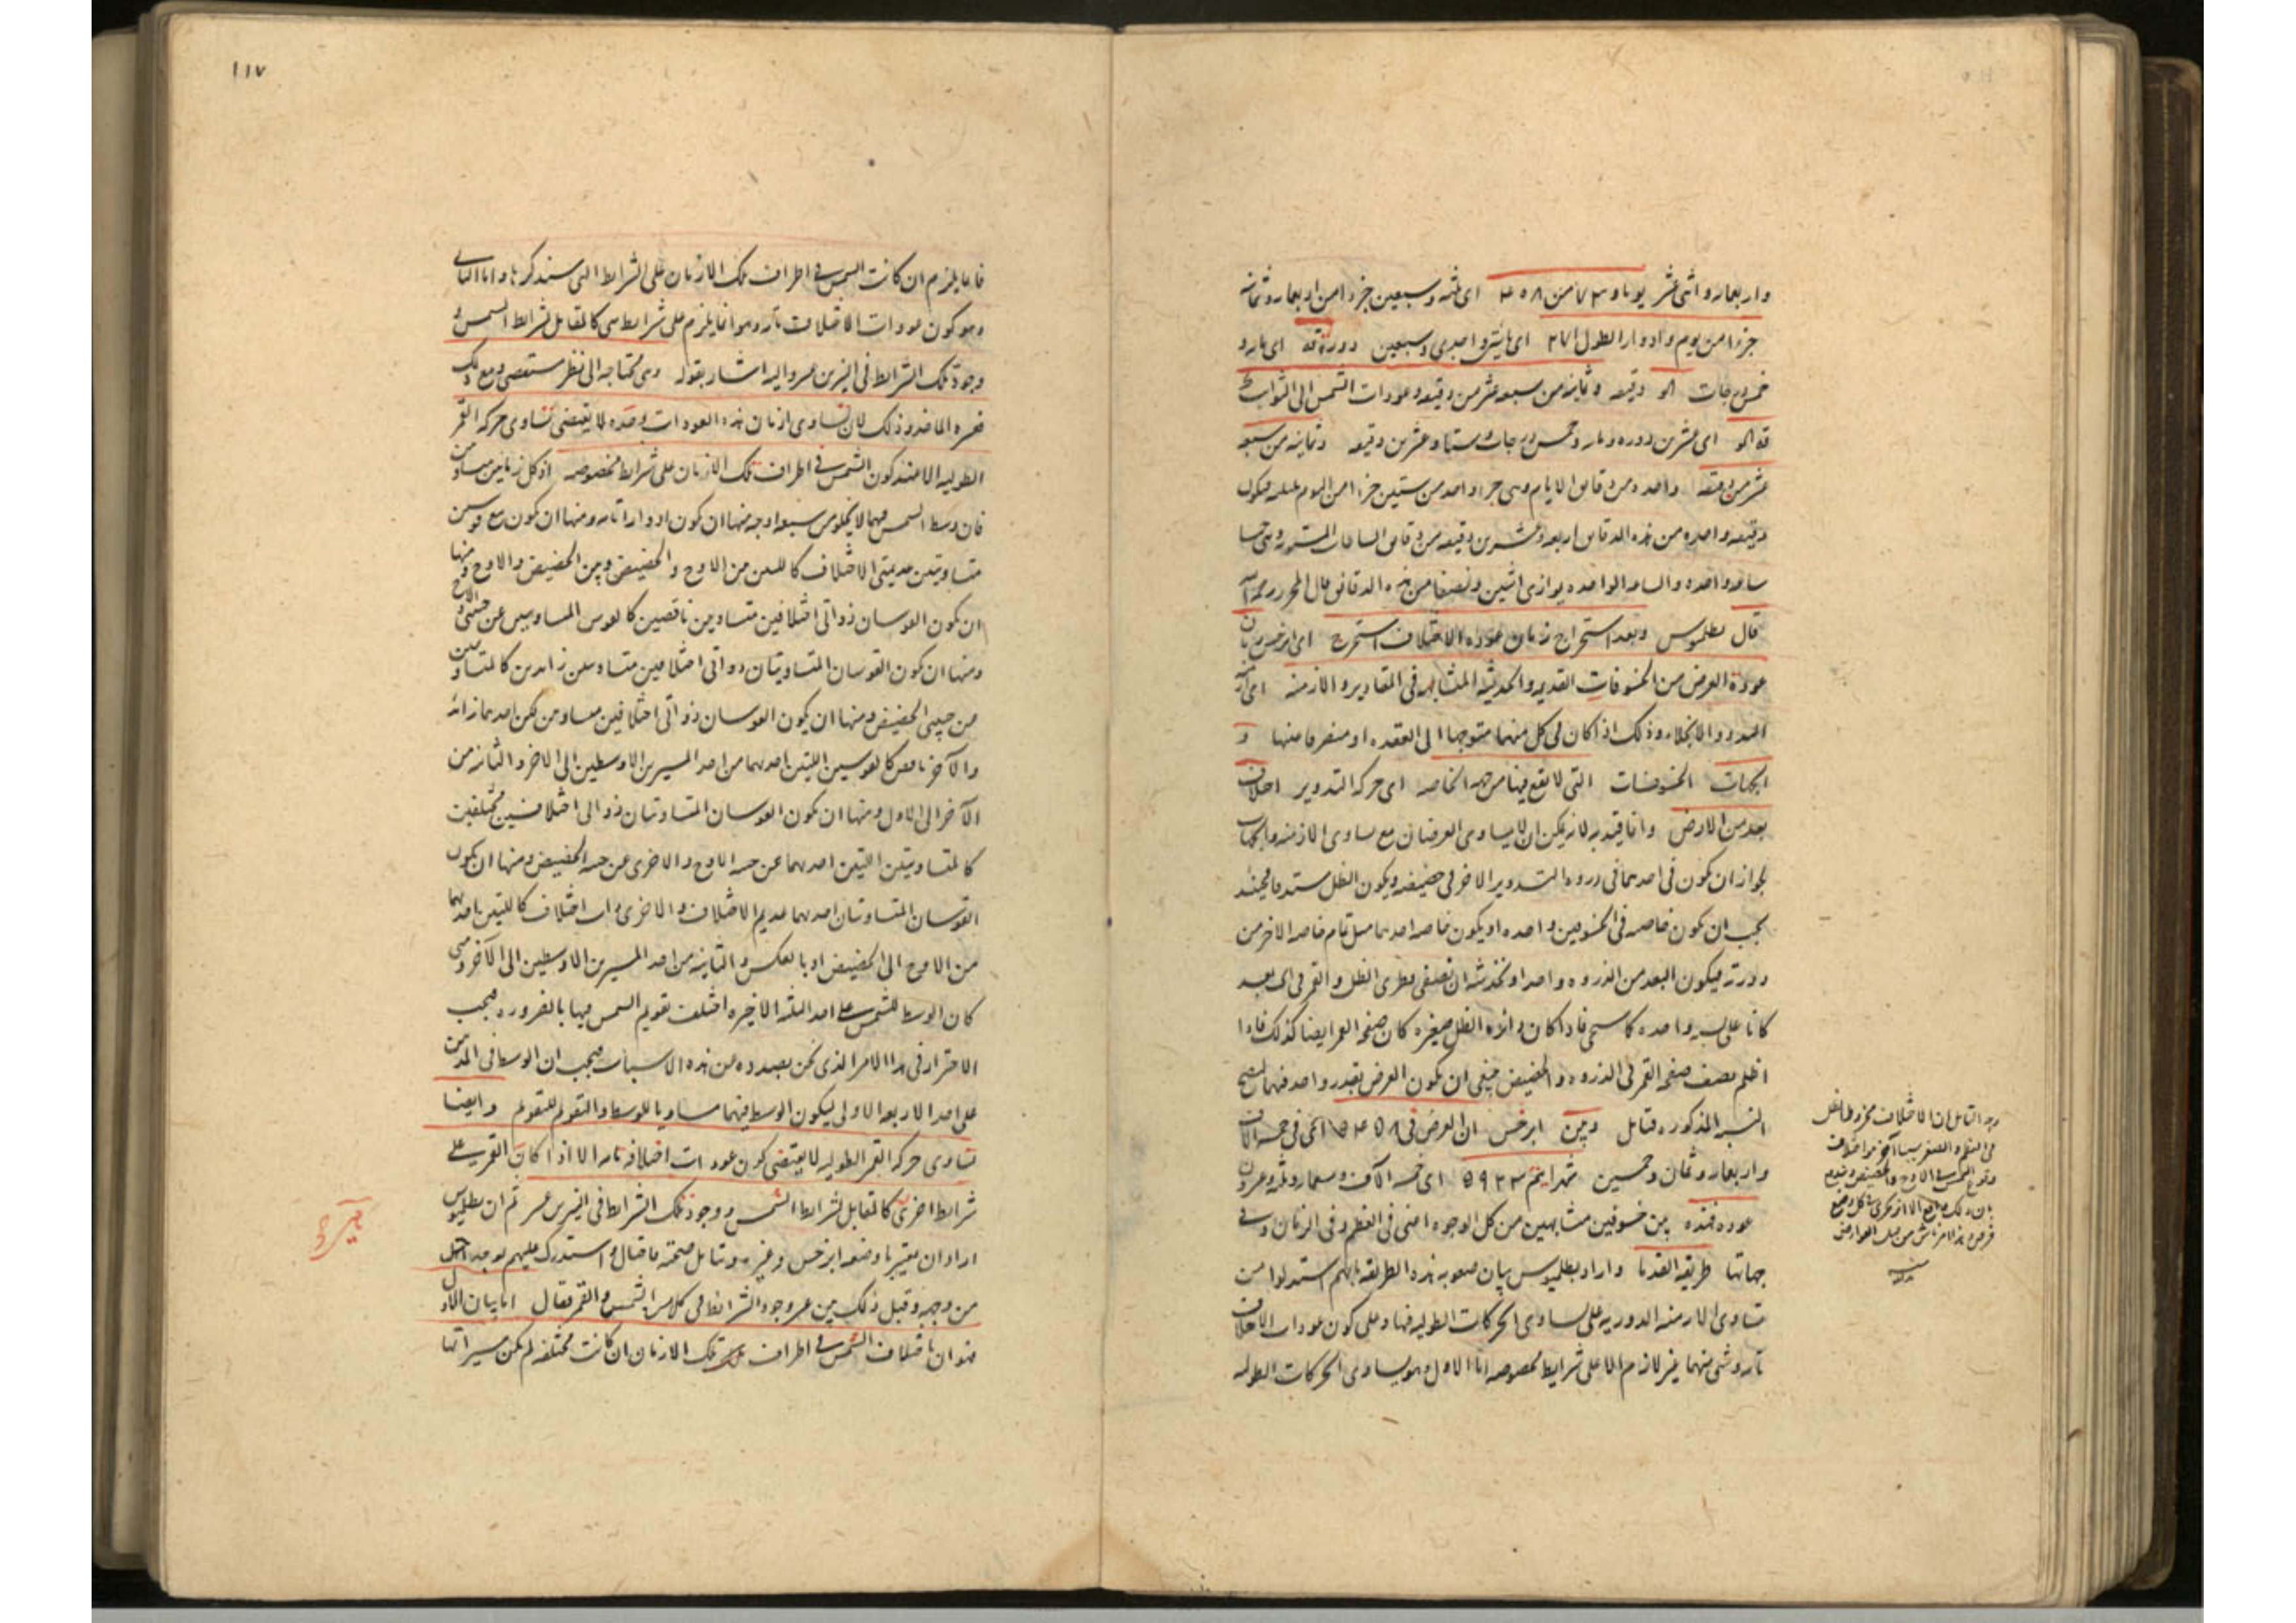 واربعمائة واثنى عشر يوما و ٧٣ من ٤٥٨ اى ثلثة وسبعين جزءا من اربعمائة وثمانية
جزءا من يوم وادوار الطول ٢٧١ اى مائتين واحدى وسبعين دورة قه اى مائة و
خمس درجات الو دقيقة وثانية من سبعة عشر من دقيقة وعودات الشمس الى الثوابت
قه الو اى عشرين دورة ومائة وخمس درجات وستا وعشرين دقيقة وثمانية من سبعة
عشر من دقيقة واحدة من دقايق الايام وهى جزء واحد من ستين جزءا من اليوم بليلته فيكون
دقيقة واحدة من هذه الدقايق اربعة وعشرين دقيقة من دقايق الساعات المستوية وهى خمسا
ساعة واحدة والساعة الواحدة يوازى اثنين ونصفا من هذه الدقايق قال المحرر رحمه الله
قال بطلميوس وبعد استخراج زمان عودة الاختلاف استخرج اى ابرخس زمان
عودة العرض من الخسوفات القديمة والحديثة المتشابهة فى المقادير والازمنة اى ازمنة
البدو والانجلاء وذلك اذا كان فى كل منهما متوجها الى العقدة او منصرفا عنها و
الجهات الخسوفات التى لا يقع فيها من جهة الخاصة اى حركة التدوير اختلاف
بعد من الارض وانما قيد به لانه يمكن ان لا يساوى العرضان مع تساوى الازمنة والجهات
لجواز ان يكون فى احدهما فى ذروة التدوير والاخر فى حضيضه ويكون الظل مستدقا فحينئذ
يجب ان يكون خاصه فى الخسوفين واحدة او يكون خاصة احدهما مثل تمام خاصة الاخر من
دورته فيكون البعد من الذروة واحدا ان نصفى قطرى الظل والقمر فى اى بعد
كانا على نسبة واحدة كما سيجى فاذا كان دائرة الظل صغيرة كان صفحة القمر ايضا كذلك فاذا
اظلم نصف صفحة القمر فى الذروة والحضيض فينبغى ان يكون العرض بقدر واحد فيهما
النسبة المذكورة فتامل وبين ابرخس ان العرض فى ٥٤٥٨ اعنى فى خمسة الاف
واربعمائة وثمان وخمسين شهرا يتم ٥٩٢٣ اى خمسة آلاف وتسعمائة وثلثة وعشرون
عودة فهذه بين خسوفين متشابهين من كل الوجوه اعنى فى العظم وفى الزمان وفى
جهاتها طريقة القدما واراد بطلميوس بيان صعوبة هذه الطريقة بانهم استدلوا من
تساوى الازمنة الدورية على تساوى الحركات الطولية فيها وعلى كون عودات الاختلاف
تامة وشى منهما غير لازم الا على شرايط مخصوصة اما الاول وهو تساوى الحركات الطولية
وجه التامل ان الاختلاف مخروط الظل
فى العظم والصغر سببا آخر هو اختلاف
وقوع الشمس فى الاوج والحضيض
١١٧
فانما يلزم ان كانت الشمس فى اطراف تلك الازمان على الشرايط التى سنذكرها واما الثانى
وهو كون عودات الاختلاف تامة وهو انما يلزم على شرايط هى كالمقابل لشرايط الشمس و
وجود تلك الشرايط فى النيرين عسر واليه اشار بقوله وهى محتاجة الى نظر مستقصى ومع ذلك
وذلك لان تساوى ازمان هذه العودات وحده لا يقتضى تساوى حركة القمر
الطولية الا عند كون الشمس فى اطراف تلك الازمان على شرايط مخصوصة اذ كل زمانين متساويين
فان وسط الشمس فيهما لا يخلو من سبعة اوجه منها ان يكون ادوارا تامة ومنها ان يكون مع قوسين
متساويتين عديمتى الاختلاف كاللتين من الاوج والحضيض وبين الحضيض والاوج ومنها
ان يكون القوسان ذواتى اختلافين متساويين ناقصين كالقوسين المتساويتين عن جنبى الاوج و
ومنها ان يكون القوسان المتساويتان ذواتى اختلافين متساويين زائدين كالمتساويتين
من جنبى الحضيض ومنها ان يكون القوسان ذواتى اختلافين متساويين لكن احدهما زائد
والآخر ناقص كالقوسين اللتين احدهما من احد المسيرين الاوسطين الى الاخر والثانية من
الآخر الى الاول ومنها ان يكون القوسان المتساويتان ذواتى اختلافين مختلفين
كالمتساويتين اللتين احدهما عن جنبى الاوج والاخرى عن جنبى الحضيض ومنها ان يكون
القوسان المتساويتان احدهما عديم الاختلاف والاخرى ذات اختلاف كاللتين احدهما
من الاوج الى الحضيض او بالعكس والثانية من احد المسيرين الاوسطين الى الآخر ومتى
كان الوسط للشمس على احد الثلثة الاخيرة اختلف تقويم الشمس فيها بالضرورة فيجب
الاحتراز فى هذا الامر الذى نحن بصدده من هذه الاسباب فيجب ان الوسط فى المدتين
على احد الاربعة الاولى ليكون الوسط فيهما مساويا للوسط والتقويم للتقويم وايضا
تساوى حركة القمر الطولية لا يقتضى كون عودات اختلافه تامة الا اذا كان القمر على
شرايط اخرى كالمقابل لشرايط الشمس ووجود تلك الشرايط فى النيرين عسر ثم ان بطلميوس
اراد ان يعتبر ما وضعه ابرخس وغيره وتامل صحة ما قال واستدرك عليهم لوجد اختل
من وجهه وقبل ذلك بين عسر وجود الشرايط فى كلامى الشمس والقمر فقال اما بيان الاول
فهو ان باختلاف الشمس فى اطراف تلك الازمان ان كانت مختلفة لم يكن مسيراتها